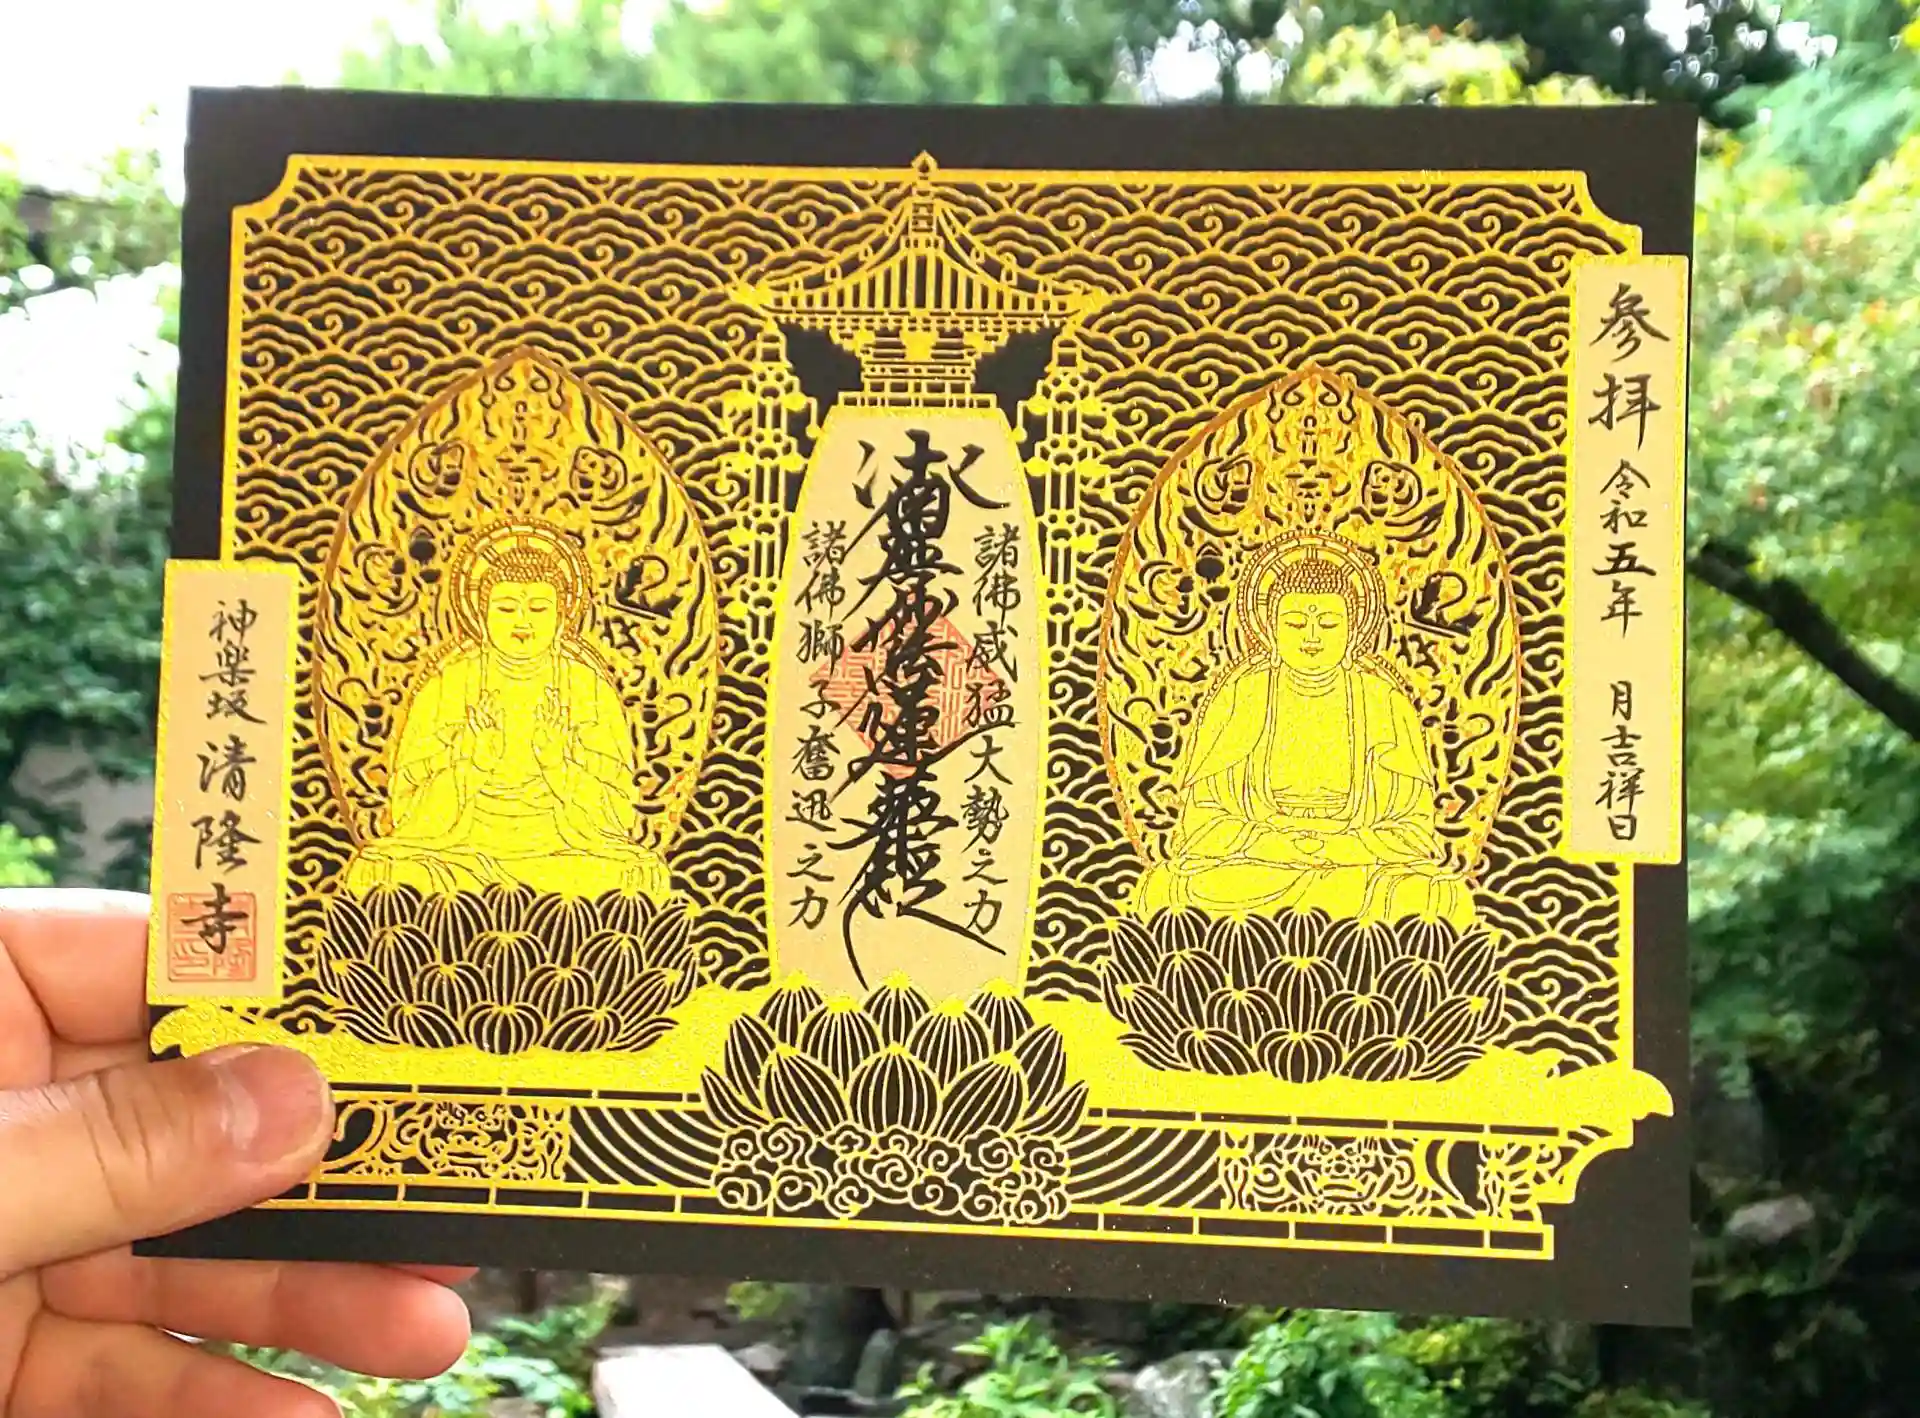 参拝 令和五年 月吉祥日
諸佛威猛大勢之力
南無妙法蓮華経
諸佛獅子奮迅之力
神楽坂 清隆寺